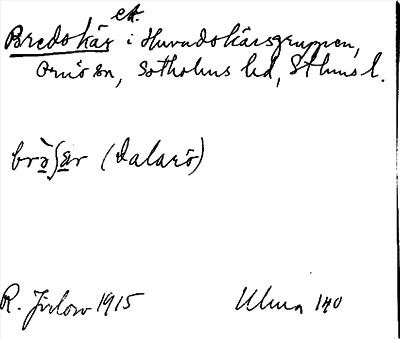 Bredskär et. i Huvudskärsgruppen,
Ornö sn, Sotholms hd, Sthms l.
bra̱ʃa̱r (Dalarö)
R. Jirlow 1915 Ulma 140